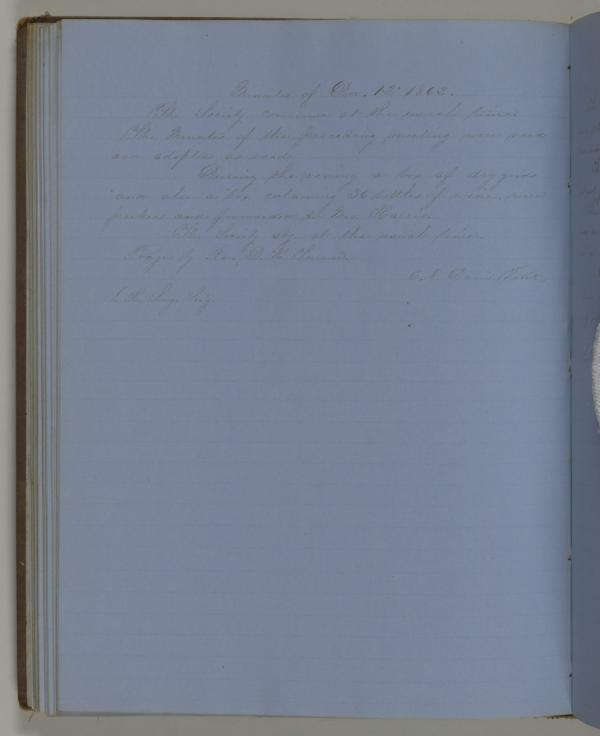 Minutes of Dec. 12" 1863.
The Society convened at the usual time.
The Minutes of the preceding meeting were read
and adopted as read.
During the evening a box of dry goods
and also a box containing 36 bottles of wine, were
packed and forwarded to Mrs. Harris.
The Society adj. at the usual time.
Prayer by Rev. D.
C. A.
Secy.